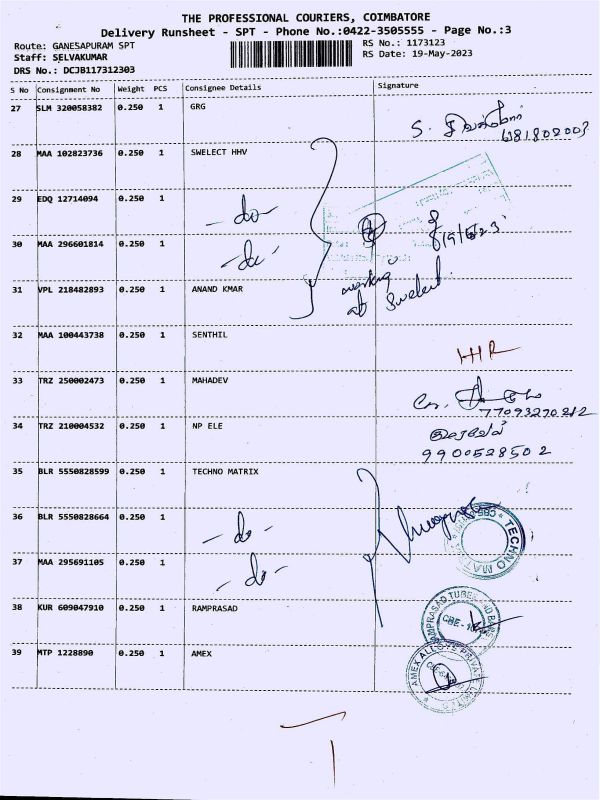 THE PROFESSIONAL COURIERS, COIMBATORE
Delivery Runsheet - SPT - Phone No.:0422-3505555 - Page No.:3
Route: GANESAPURAM SPT
RS No.: 1173123
Staff: SELVAKUMAR
RS Date: 19-May-2023
DRS No.: DCJB117312303
S No Consignment No Weight PCS Consignee Details Signature
27 SLM 320058382 0.250 1 GRG
S.
28 MAA 102823736 0.250 1 SWELECT HHV
29 EDQ 12714094 0.250 1 -do-
19/5/23
30 MAA 296601814 0.250 1 -do-
working
at Swelect.
31 VPL 218482893 0.250 1 ANAND KMAR
32 MAA 100443738 0.250 1 SENTHIL
HR
33 TRZ 250002473 0.250 1 MAHADEV
77093270212
34 TRZ 210004532 0.250 1 NP ELE
9900528502
35 BLR 5550828599 0.250 1 TECHNO MATRIX
36 BLR 5550828664 0.250 1 -do-
TECHNO
37 MAA 295691105 0.250 1 -do-
38 KUR 609047910 0.250 1 RAMPRASAD
RAMPRASAD TUBES AND
CBE
39 MTP 1228890 0.250 1 AMEX
AMEX ALLOYS PRIVATE LIMITED